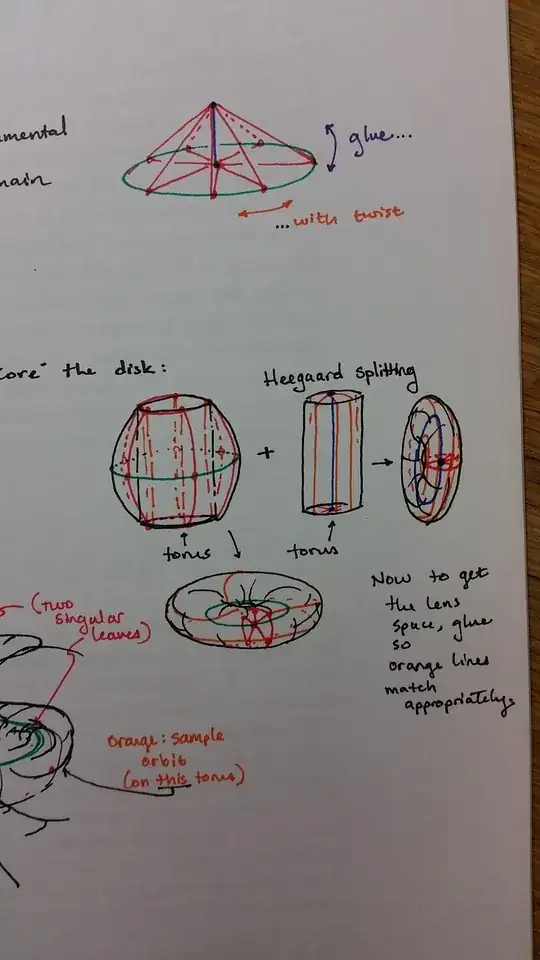 amental
main
glue...
...with twist
Core" the disk:
Heegaard splitting
+
torus
torus
Now to get
the lens
space, glue
so
orange lines
match
appropriately.
(two
singular
leaves)
orange: sample
orbit
(on this torus)